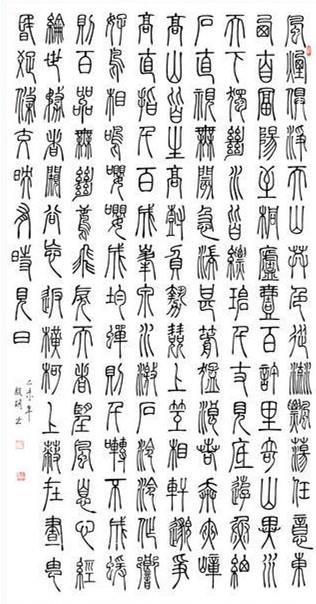 風煙俱淨天山共色從流飄蕩任意東
西自富陽至桐廬壹百許里奇山異水
天下獨絕水皆縹碧千丈見底遊魚細
石直視無礙急湍甚箭猛浪若奔夾嶂
高山皆生寒樹負勢競上互相軒邈爭
高直指千百成峯泉水激石泠泠作響
好鳥相鳴嚶嚶成韻蟬則千囀不窮猨
則百叫無絕鳶飛戾天者望峯息心經
綸世務者闚谷忘返橫柯上蔽在晝猶
昏疏條交映有時見日
乙未年